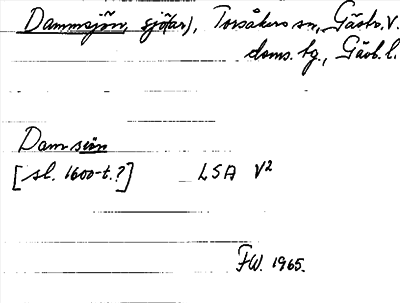 Dammsjön, sjö(ar), Torsåkers sn, Gästr. V.
doms. tg., Gävb. l.
Damsiön
[sl. 1600-t.?] LSA V²
F.W. 1965.